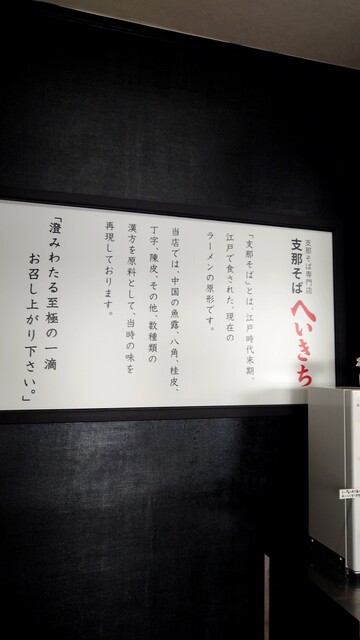 支那そば専門店
支那そば へいきち
「支那そば」とは、江戸時代末期、
江戸で食された、現在の
ラーメンの原形です。
当店では、中国の魚露、八角、桂皮、
丁字、陳皮、その他、数種類の
漢方を原料として、当時の味を
再現しております。
「澄みわたる至極の一滴
お召し上がり下さい。」